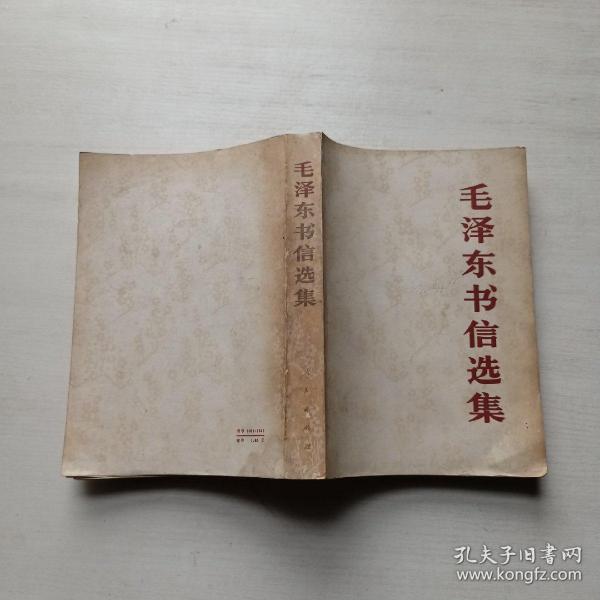 毛泽东书信选集
毛泽东书信选集
孔夫子旧書网
www.kongfz.com